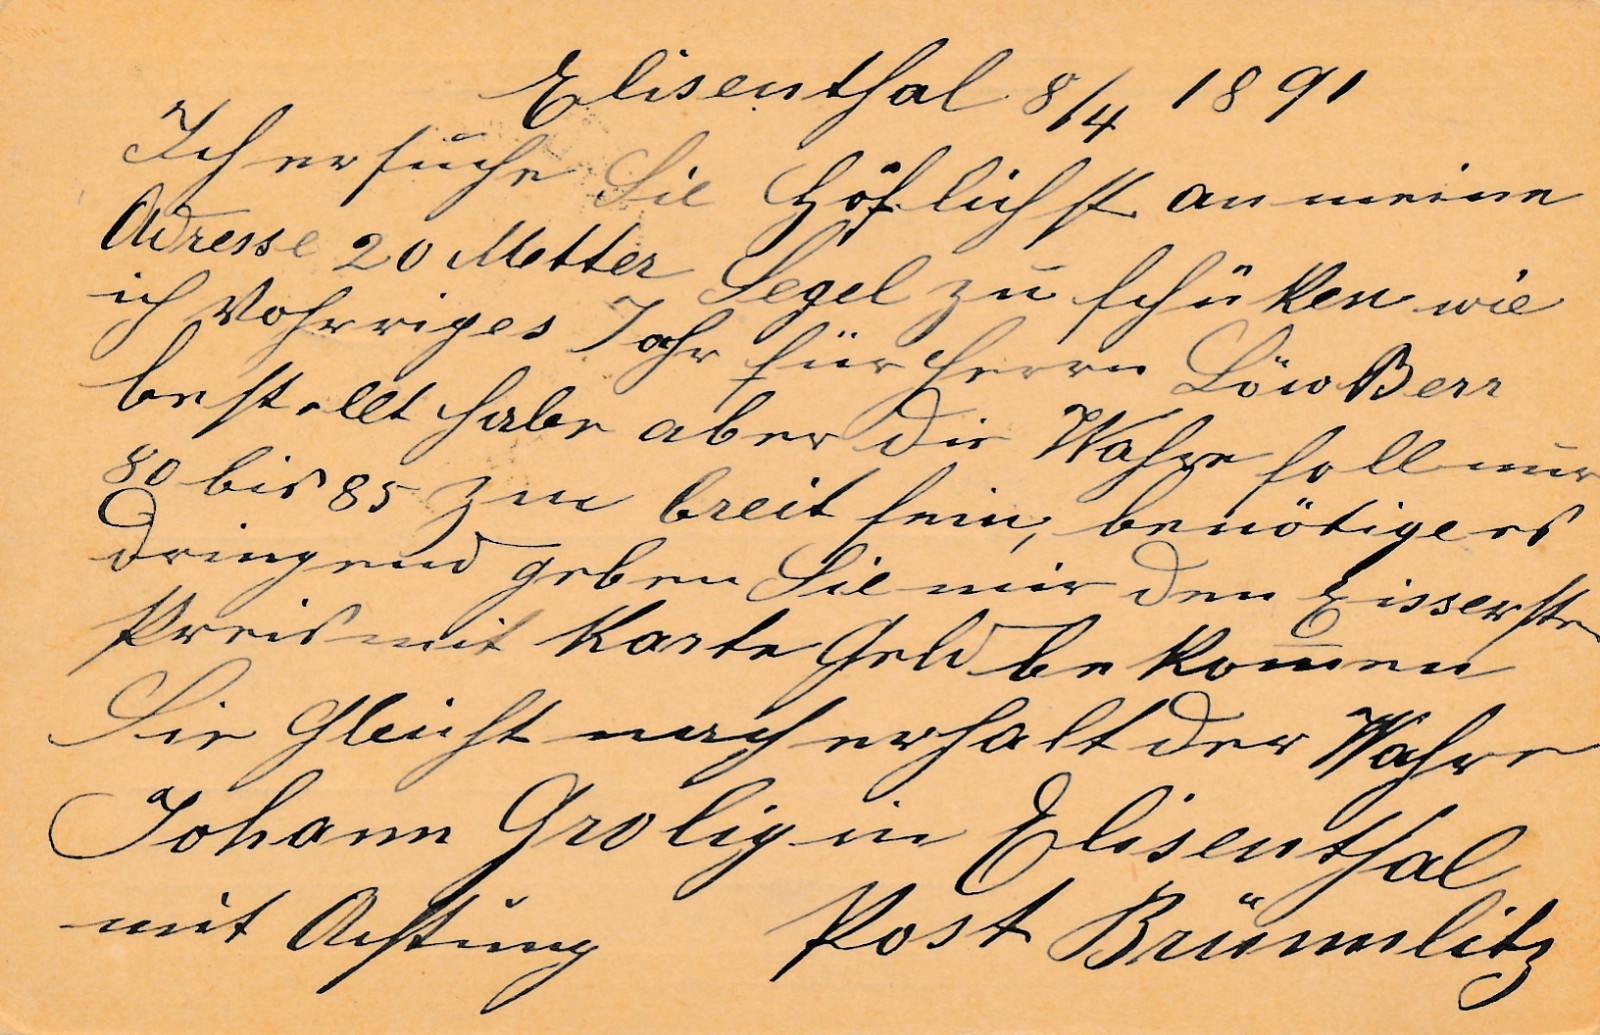 Elisenthal 8/4 1891
Ich ersuche Sie höflichst an meine
Adresse 20 Metter Segel zu schüken wie
ich Vohrriges Jahr für Herrn Löw Berr
bestellt habe aber die Wahre soll nur
80 bis 85 zm breit sein, benötige es
dringend geben Sie mir den Eissersten
Preis mit Karte Geld bekommen
Sie Gleicht nach erhalt der Wahre
Johann Grolig in Elisenthal
mit Achtung Post Brünnlitz